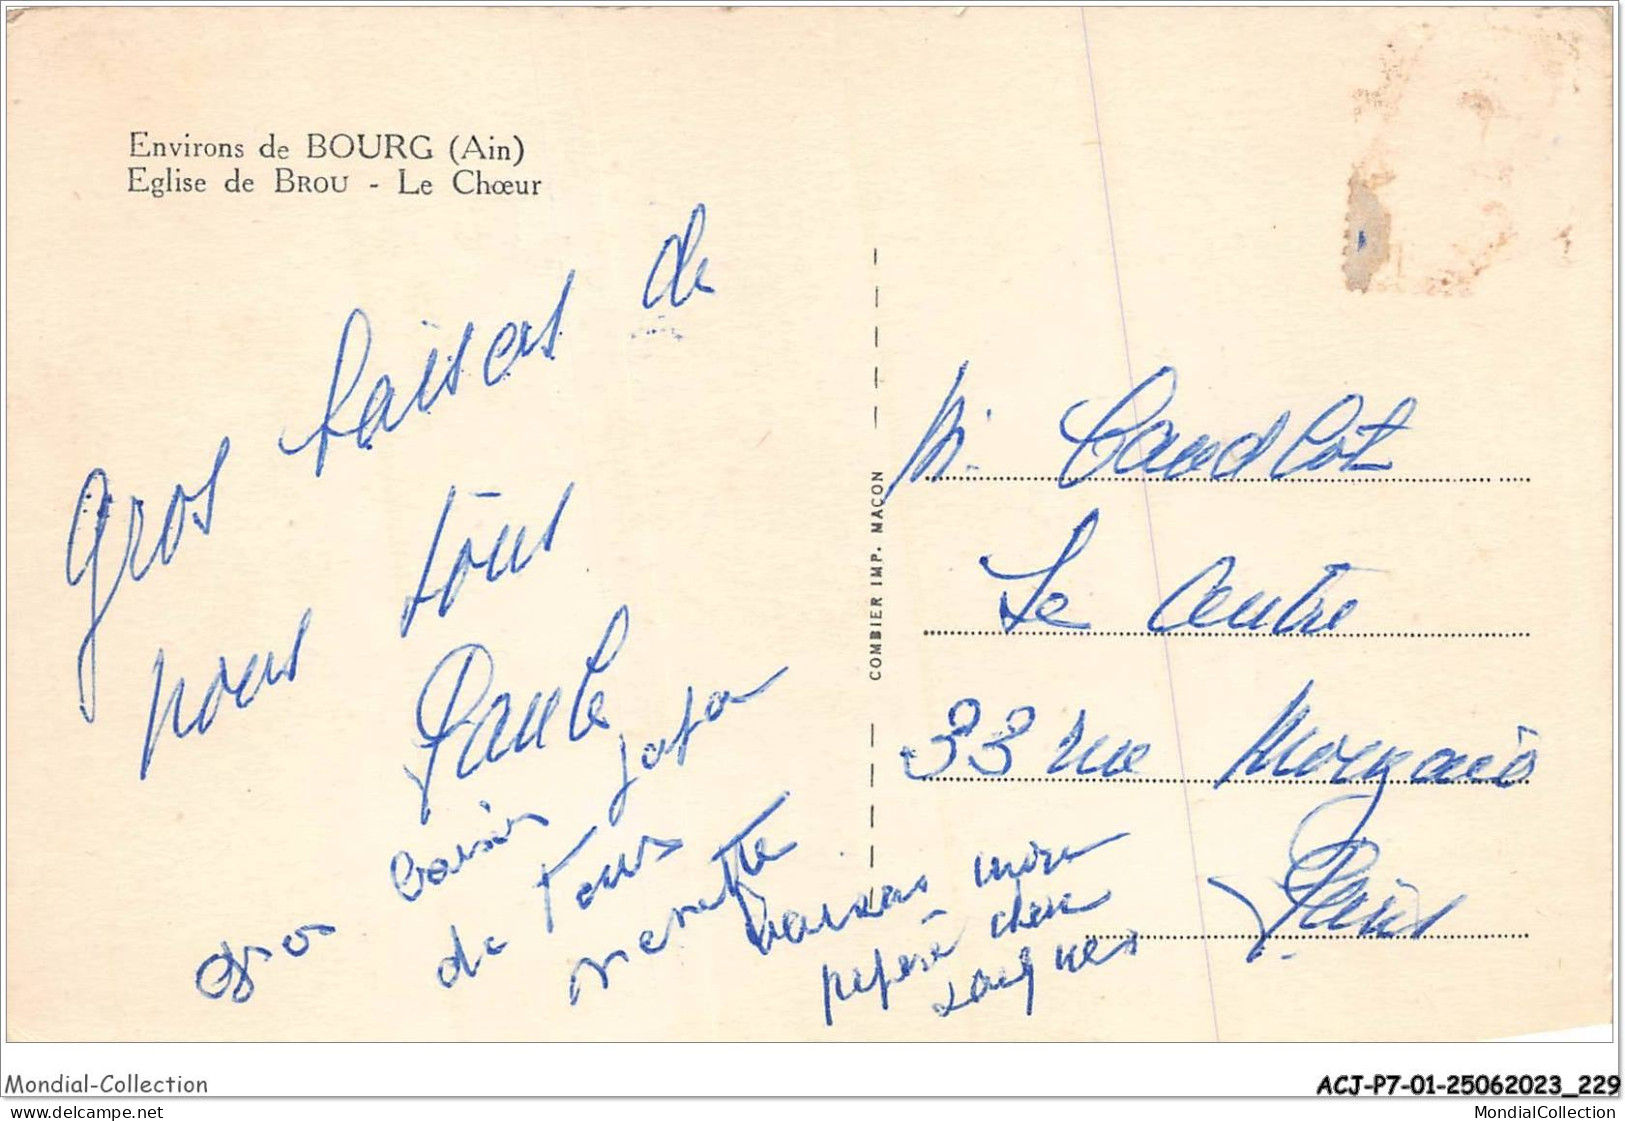 Environs de BOURG (Ain)
Eglise de BROU - Le Chœur
Gros baisers de
nous tous
Paule
gros baisers
de Tous
memette
pepere cher
Jacques
COMBIER IMP. MACON
M. Caudlot
Le Centre
33 rue
Paris
Mondial-Collection
ACJ-P7-01-25062023_229
www.delcampe.net
MondialCollection